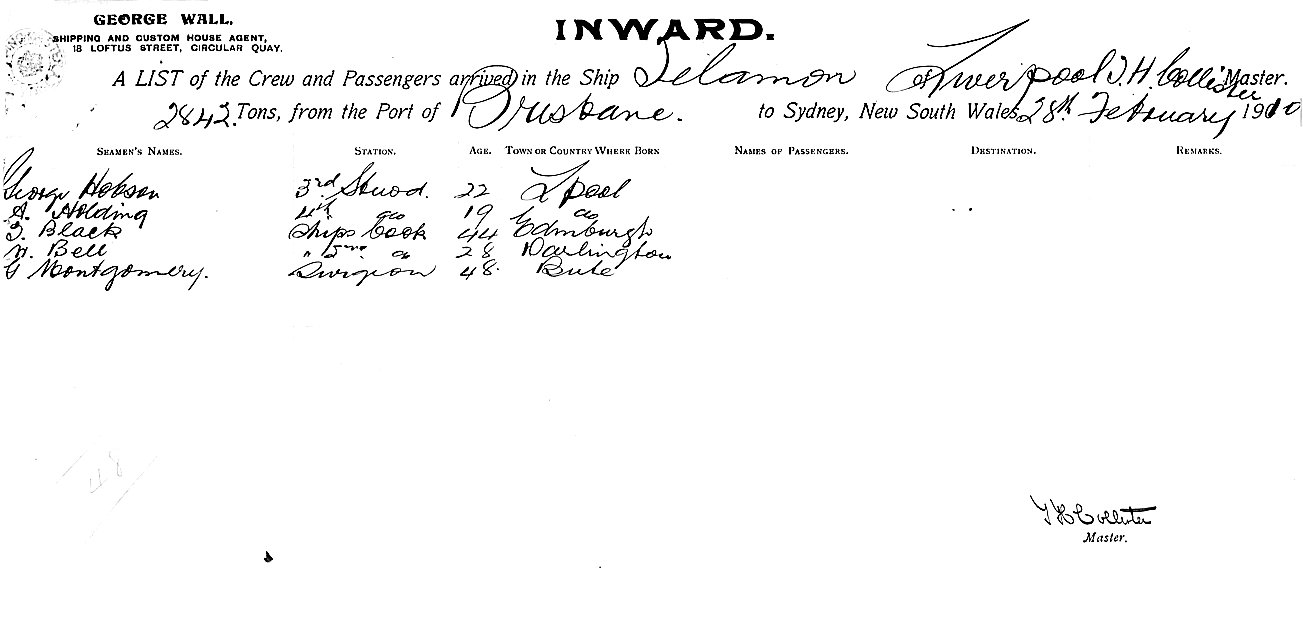 GEORGE WALL,
SHIPPING AND CUSTOM HOUSE AGENT,
18 LOFTUS STREET, CIRCULAR QUAY.
INWARD.
A LIST of the Crew and Passengers arrived in the Ship Telamon of Liverpool T. H. Collister Master.
2842 Tons, from the Port of Brisbane. to Sydney, New South Wales 28th February 1910
SEAMEN'S NAMES. STATION. AGE. TOWN OR COUNTRY WHERE BORN NAMES OF PASSENGERS. DESTINATION. REMARKS.
George Hobson 3rd Stwd. 22 L'pool
A. Holding 4th do 19 do
T. Black Ships Cook 44 Edinburgh
W. Bell " 2nd do 28 Darlington
G Montgomery. Surgeon 48. Bute
T H Collister
Master.